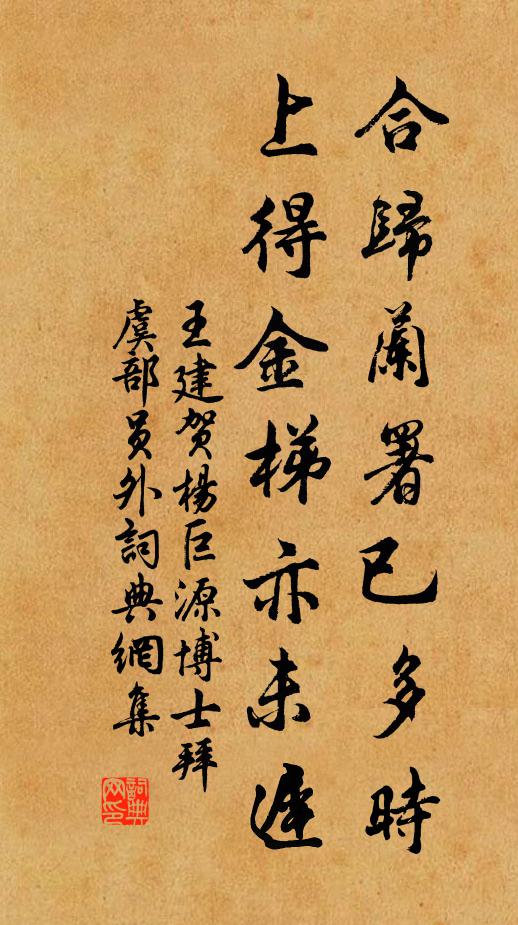 合歸蘭署已多時
上得金梯亦未遲
王建賀楊巨源博士拜
虞部員外詞典網集
詞典网印